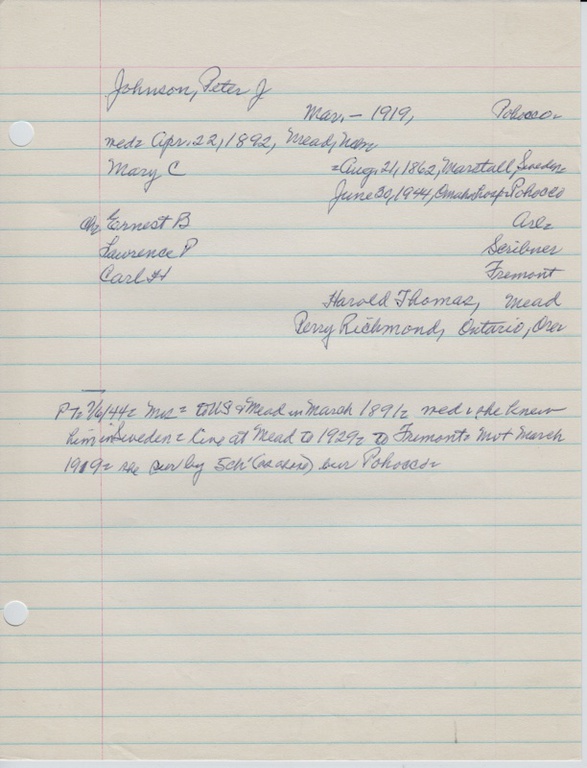 Johnson, Peter J
Mar. – 1919, Pohocco
wed= Apr. 22, 1892, Mead,
Mary C =Aug. 21, 1862, Marstall, Sweden
June 30, 1944, Omaha hosp= Pohocco
ch= Ernest B
Lawrence P Scribner
Carl H Fremont
Harold Thomas, Mead
Perry Richmond, Ontario, Ore
PT= 7/6/44= Mrs= to US & Mead in March 1891= wed= she knew
him in Sweden= live at Mead to 1929= to Fremont= Mr+ March
1919= she sur by 5ch (as above) bur Pohocco=